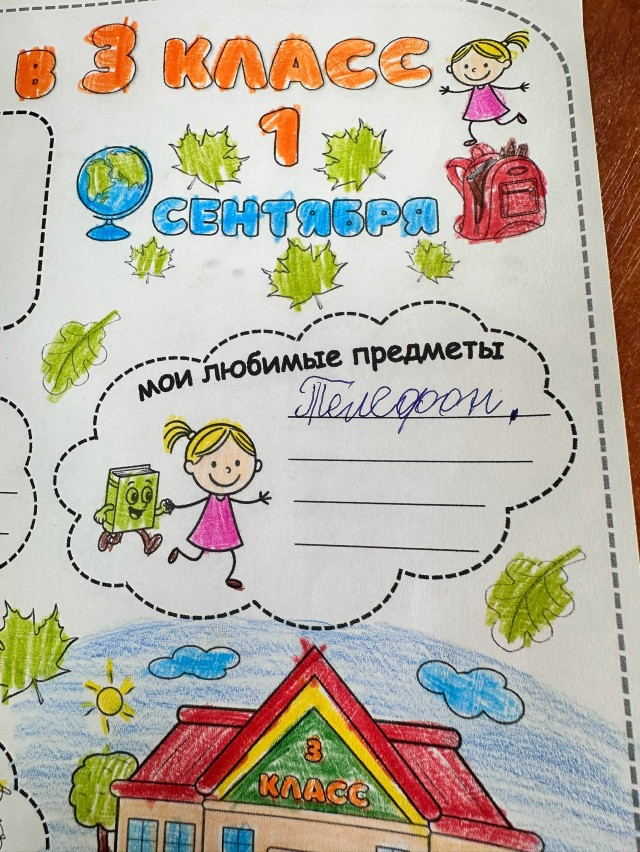 В 3 КЛАСС
1
СЕНТЯБРЯ
мои любимые предметы
Телефон,
3
КЛАСС